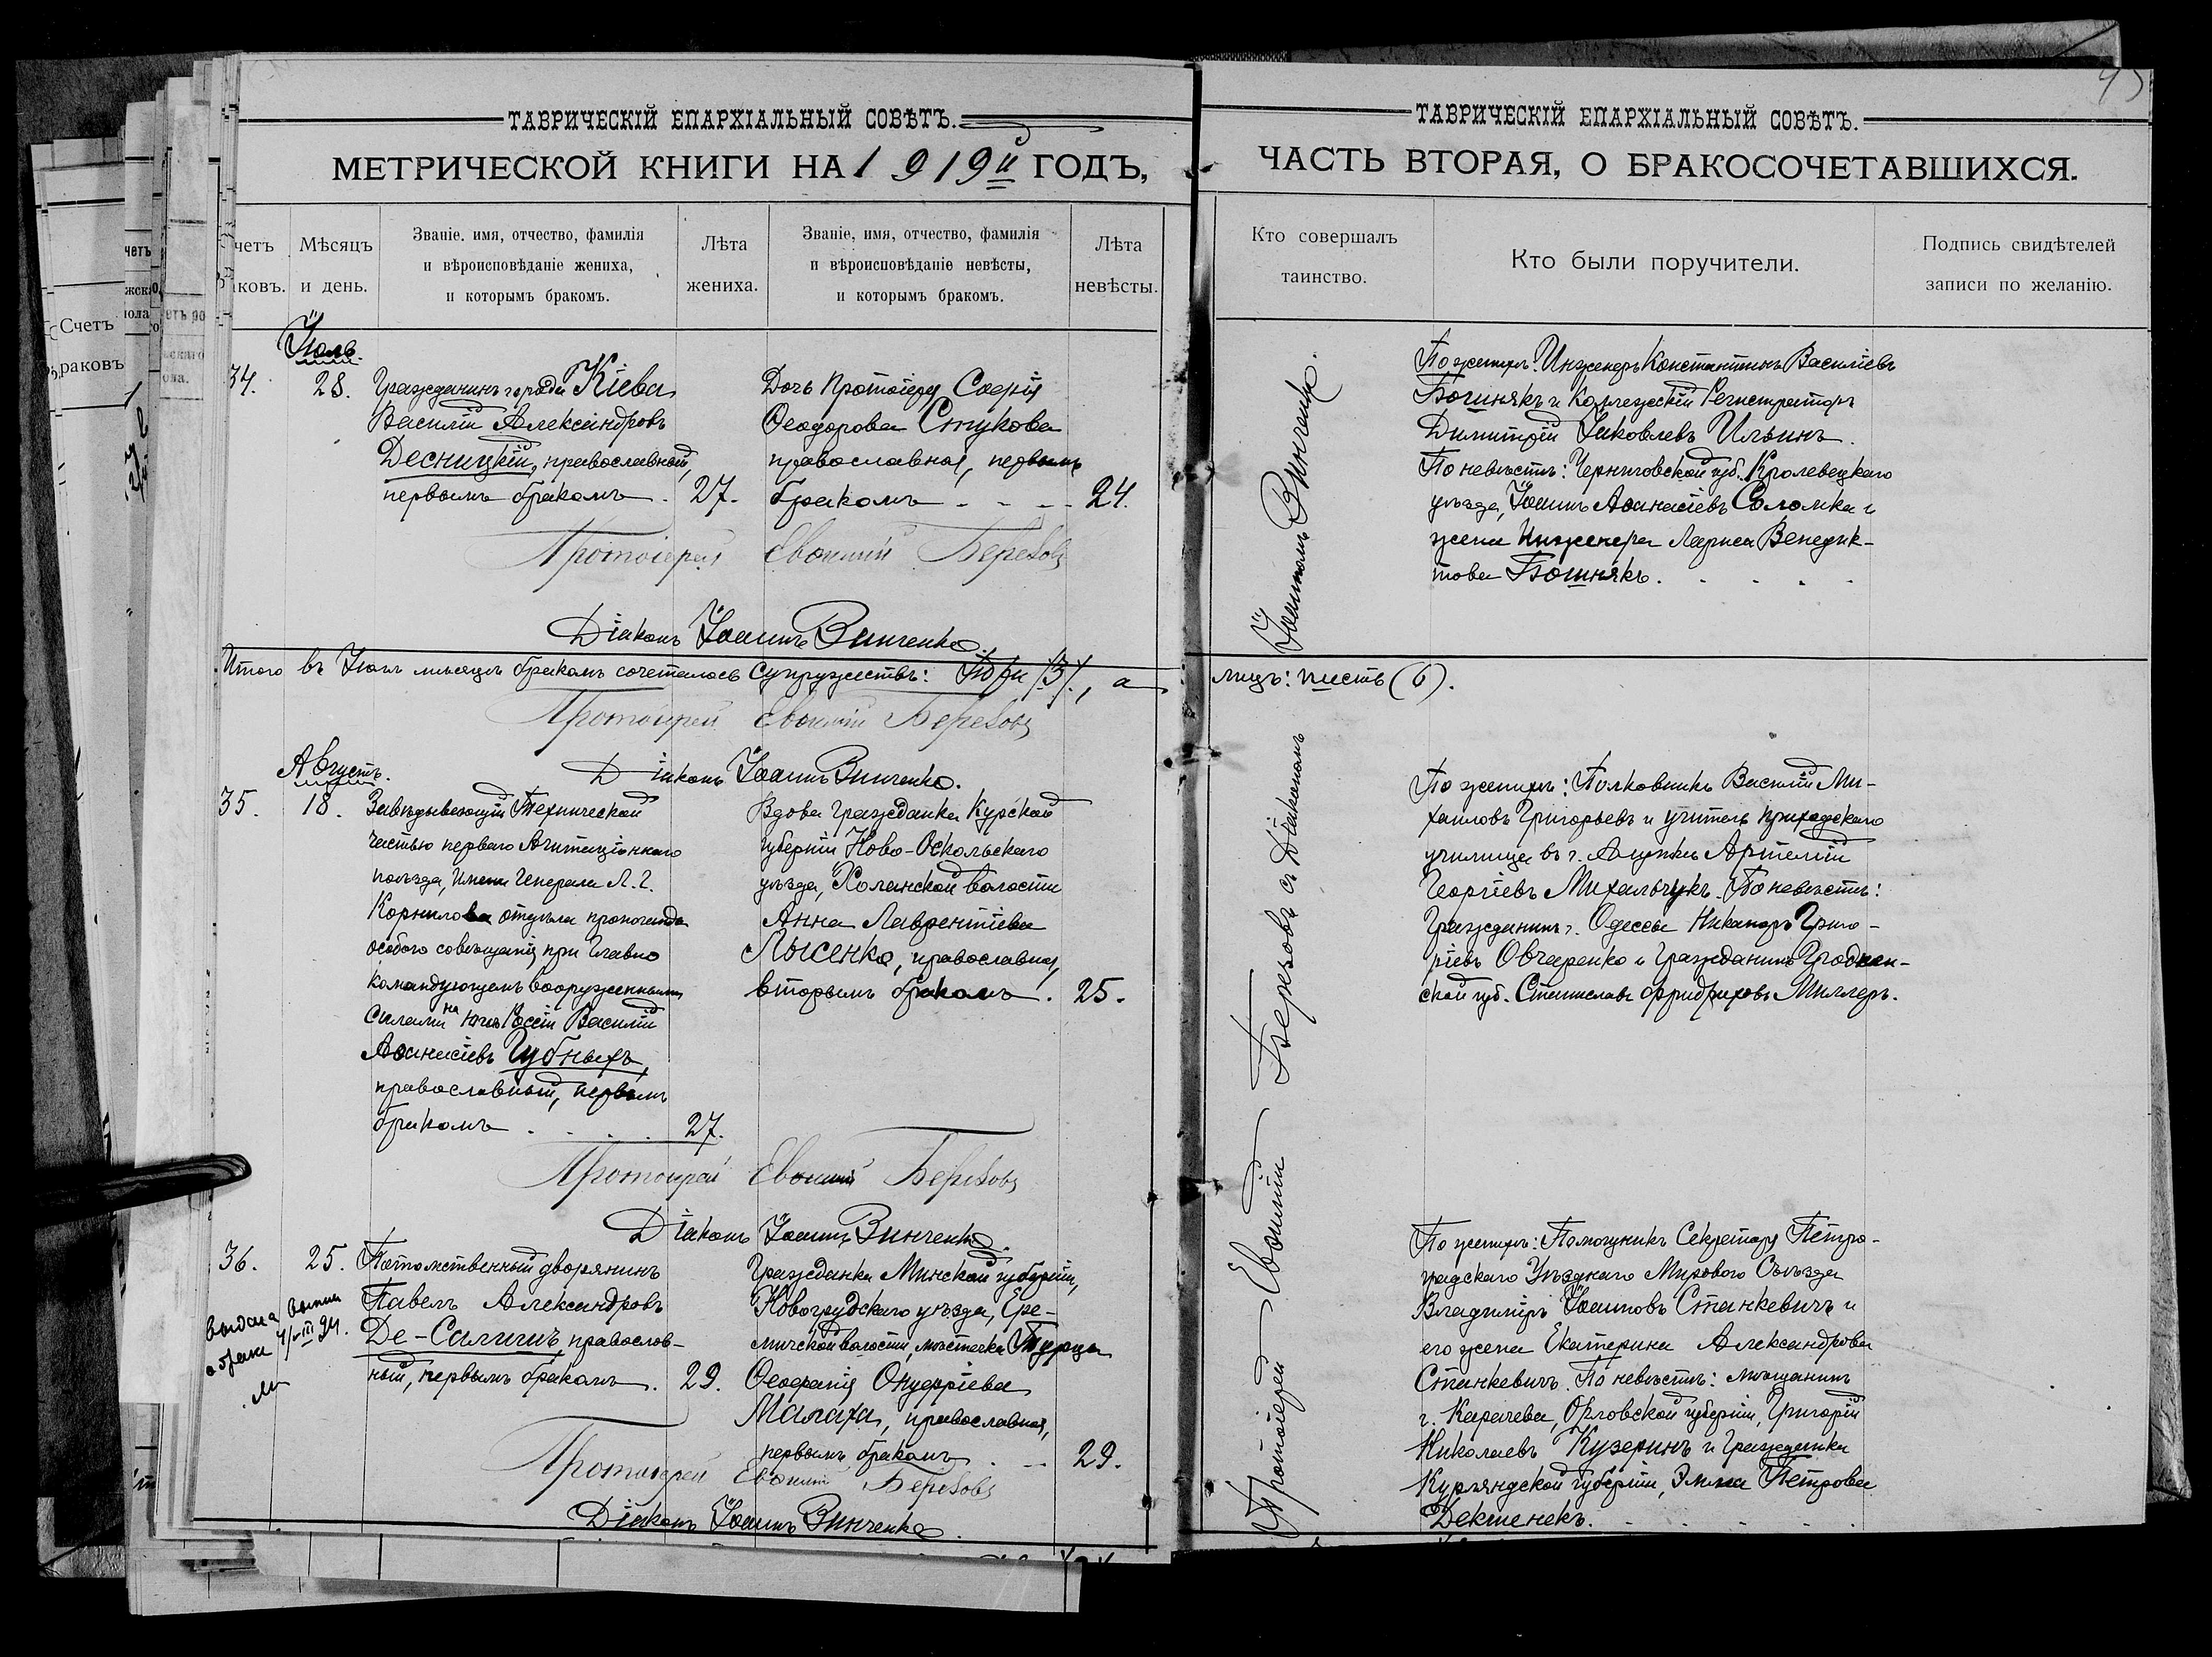 ТАВРИЧЕСКІЙ ЕПАРХІАЛЬНЫЙ СОВѢТЪ.
МЕТРИЧЕСКОЙ КНИГИ НА 1919й ГОДЪ,
Счетъ
браковъ
четъ
ковъ.
Мѣсяцъ
и день.
Званіе, имя, отчество, фамилія
и вѣроисповѣданіе жениха,
и которымъ бракомъ.
Лѣта
жениха.
Званіе, имя, отчество, фамилія
и вѣроисповѣданіе невѣсты,
и которымъ бракомъ.
Лѣта
невѣсты.
Іюль.
34.
28.
Гражданинъ города Кіева
Василій Александровъ
Десницкій, православный,
первымъ бракомъ.
27.
Дочь Протоіерея Софія
Ѳеодорова Стукова
православная, первымъ
бракомъ
24.
Протоіерей Евѳимій Березовъ
Діаконъ Іоаннъ Винченко.
Итого въ Іюлѣ мѣсяцѣ бракомъ сочеталось супружествъ: Три /3/, а
Протоіерей Евѳимій Березовъ
Діаконъ Іоаннъ Винченко.
Августъ.
35.
18.
Завѣдывающій Технической
частью перваго Агитаціоннаго
поѣзда, Имени Генерала Л. Г.
Корнилова отдѣла пропоганды
особого совѣщанія при Главно
командующемъ вооруженными
силами на Югѣ Россіи Василій
Аѳанасіевъ Губныхъ,
православный, первымъ
бракомъ
27.
Вдова Гражданка Курской
губерніи Ново-Оскольскаго
уѣзда, Холанской волости
Анна Лаврентіева
Лысенко, православная,
вторымъ бракомъ.
25.
Протоіерей Евѳимій Березовъ
Діаконъ Іоаннъ Винченко.
36.
25.
Потомственный дворянинъ
Павелъ Александровъ
Де-Салинъ, православ-
ный, первымъ бракомъ.
29.
Гражданка Минской губерніи,
Новогрудскаго уѣзда, Ере-
мичской волости, мѣстечка Турца
Ѳеофанія Онуфріева
Малаха, православная,
первымъ бракомъ
29.
выдана выпись
о бракѣ
Протоіерей Евѳимій Березовъ
Діаконъ Іоаннъ Винченко.
ТАВРИЧЕСКІЙ ЕПАРХІАЛЬНЫЙ СОВѢТЪ.
ЧАСТЬ ВТОРАЯ, О БРАКОСОЧЕТАВШИХСЯ.
Кто совершалъ
таинство.
Кто были поручители.
Подпись свидѣтелей
записи по желанію.
Протоіерей Евѳимій Березовъ съ Діакономъ Іоанномъ Винченко.
По женихѣ: Инженеръ Константинъ Василіевъ
Бошнякъ и Коллежскій Регистраторъ
Димитрій Іаковлевъ Ильинъ.
По невѣстѣ: Черниговской губ. Кролевецкаго
уѣзда, Іоаннъ Аѳанасіевъ Соломка и
жена Инженера Лариса Венедик-
това Бошнякъ.
лицъ: шесть (6).
По женихѣ: Полковникъ Василій Ми-
хаиловъ Григорьевъ и учитель приходскаго
училища въ г. Алупкѣ Артемій
Георгіевъ Михальчукъ. По невѣстѣ:
Гражданинъ г. Одессы Никаноръ Григо-
ріевъ Овчаренко и Гражданинъ Гроднен-
ской губ. Станиславъ Фридриховъ Миллеръ.
По женихѣ: Помощникъ Секретаря Петро-
градскаго Уѣзднаго Мирового Съѣзда
Владиміръ Іоанновъ Станкевичъ и
его жена Екатерина Александрова
Станкевичъ. По невѣстѣ: мѣщанинъ
г. Карачева, Орловской губерніи, Григорій
Николаевъ Кузеринъ и Гражданка
Курляндской губерніи, Эмма Петрова
Декшенекъ.